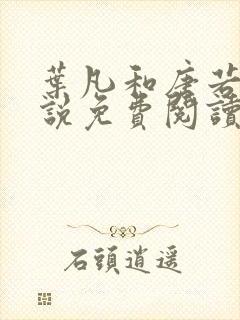 葉凡和唐若
說免費閱讀
石頭逍遥